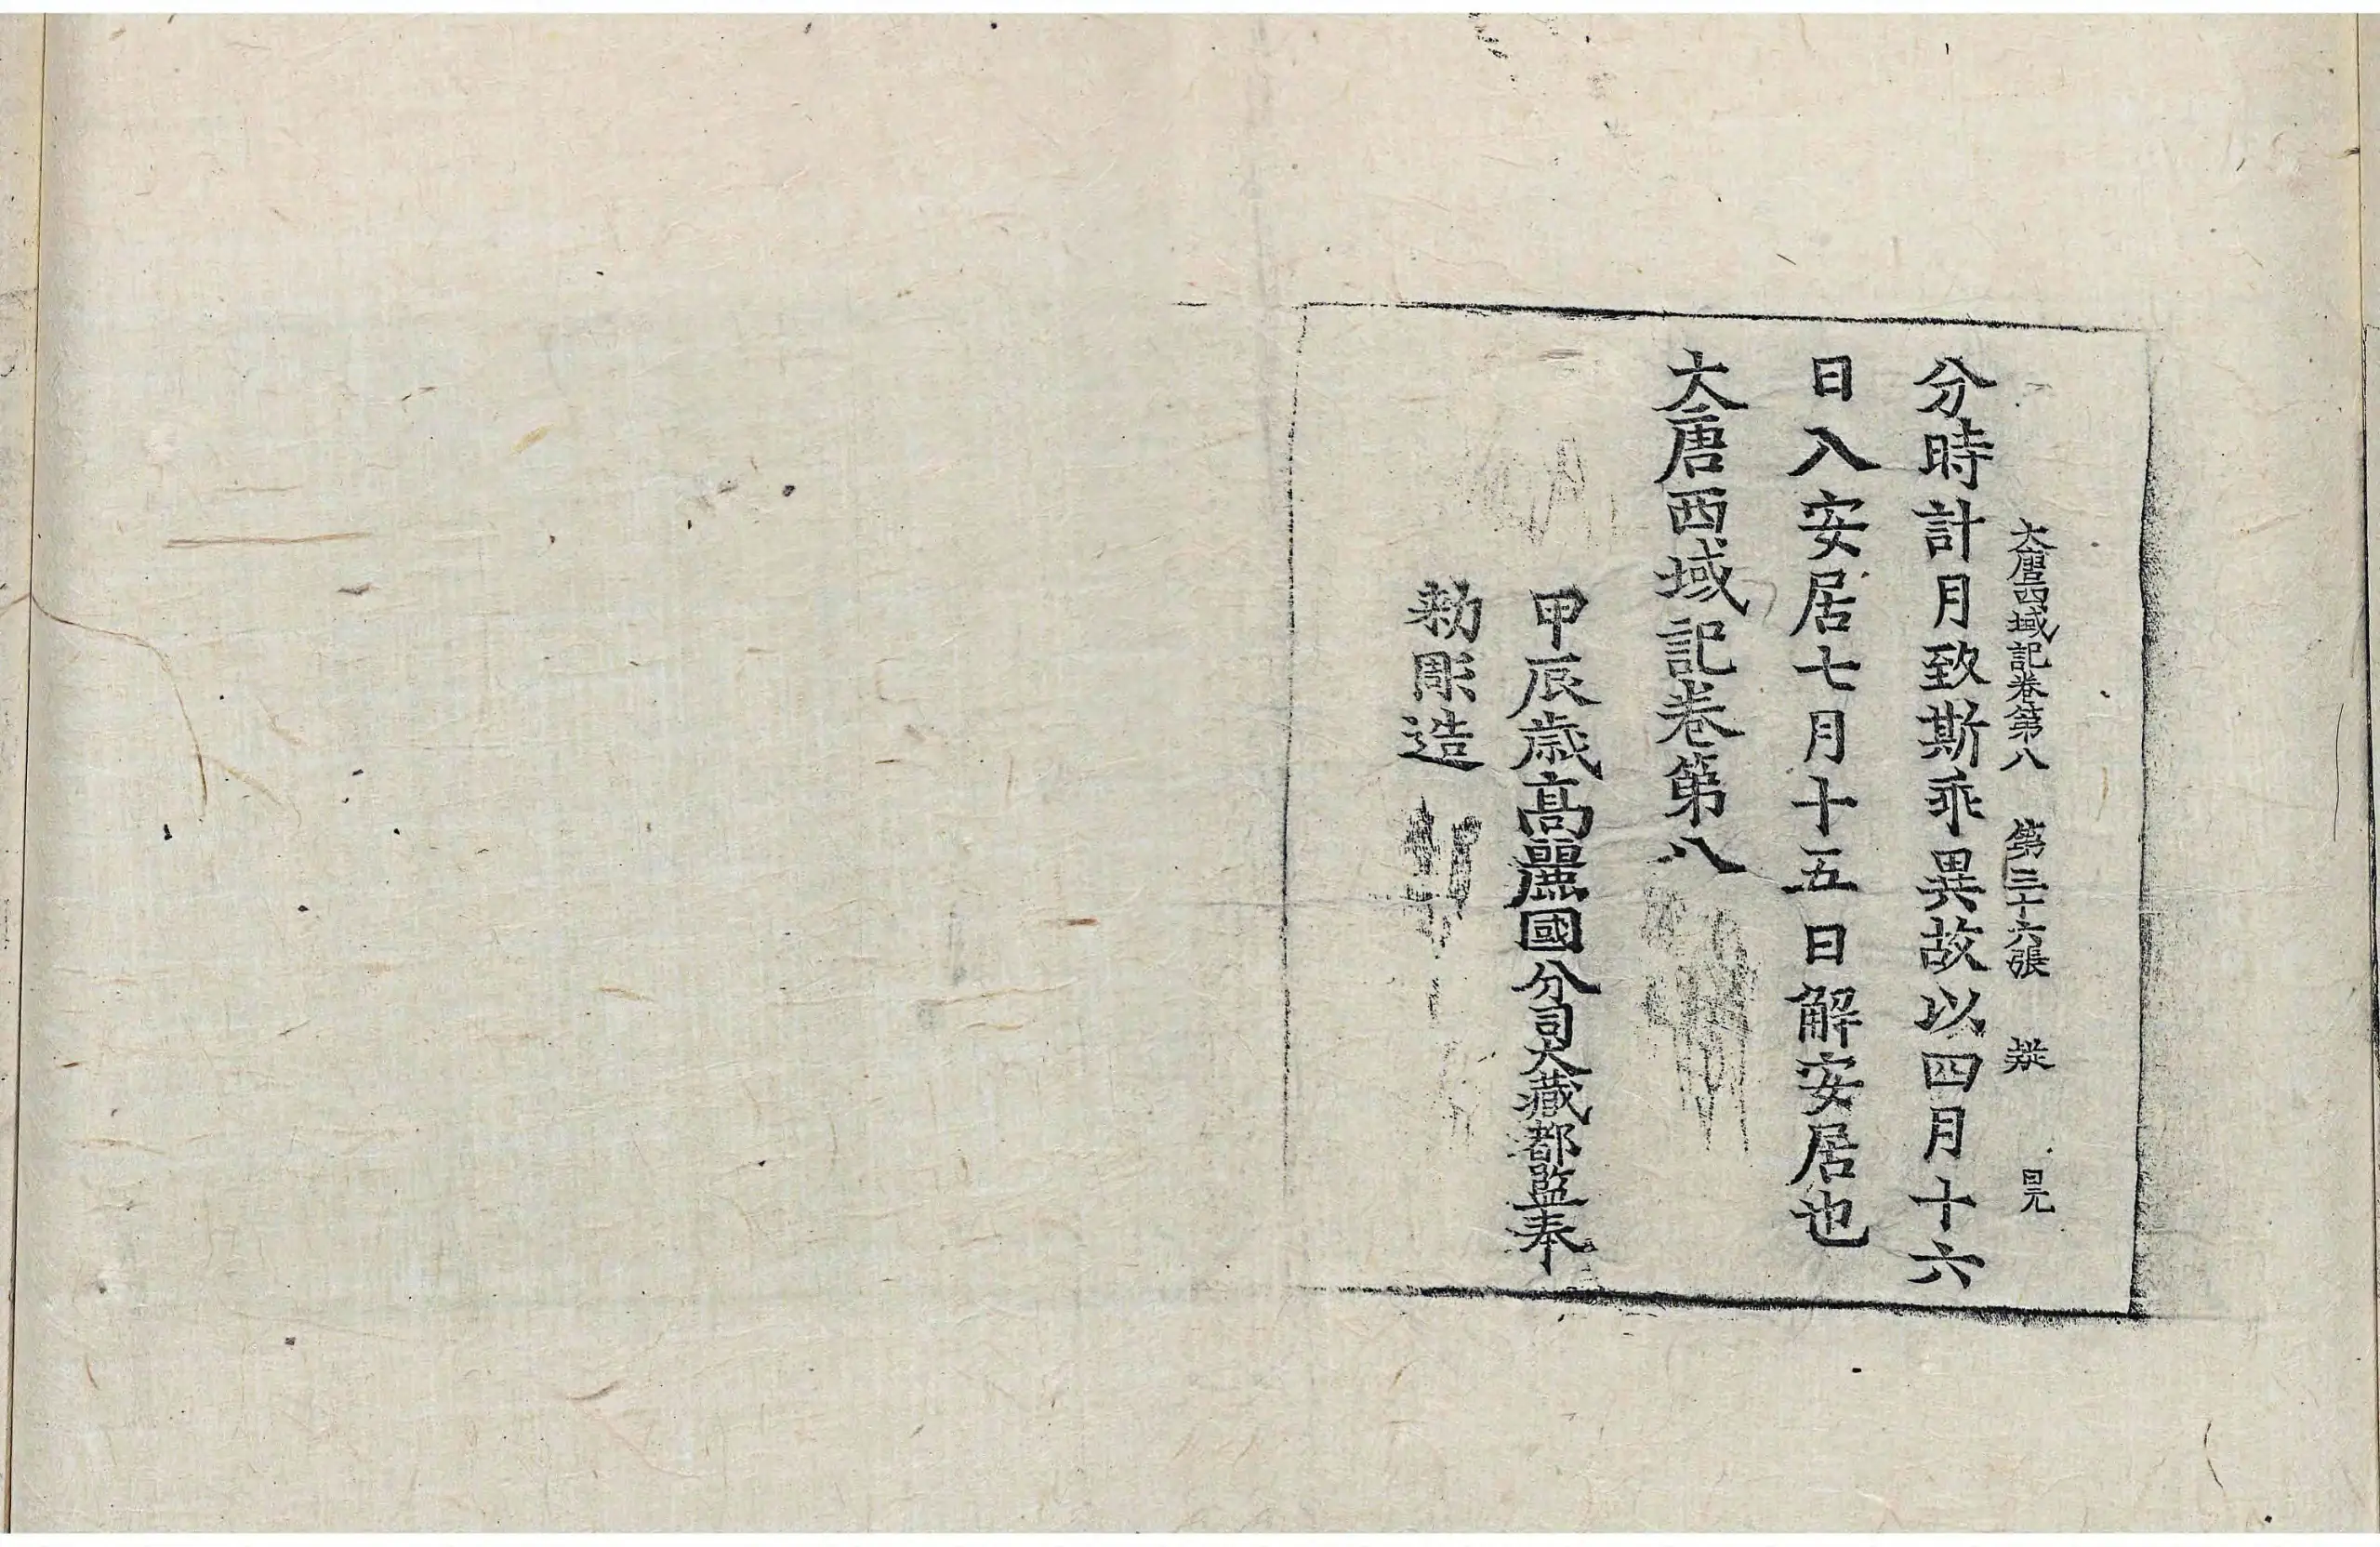 大唐西域記卷第八 第三十六張 㰱 日元
分時計月致斯乖異故以四月十六
日入安居七月十五日解安居也
大唐西域記卷第八
甲辰歲高麗國分司大藏都監奉
勑彫造